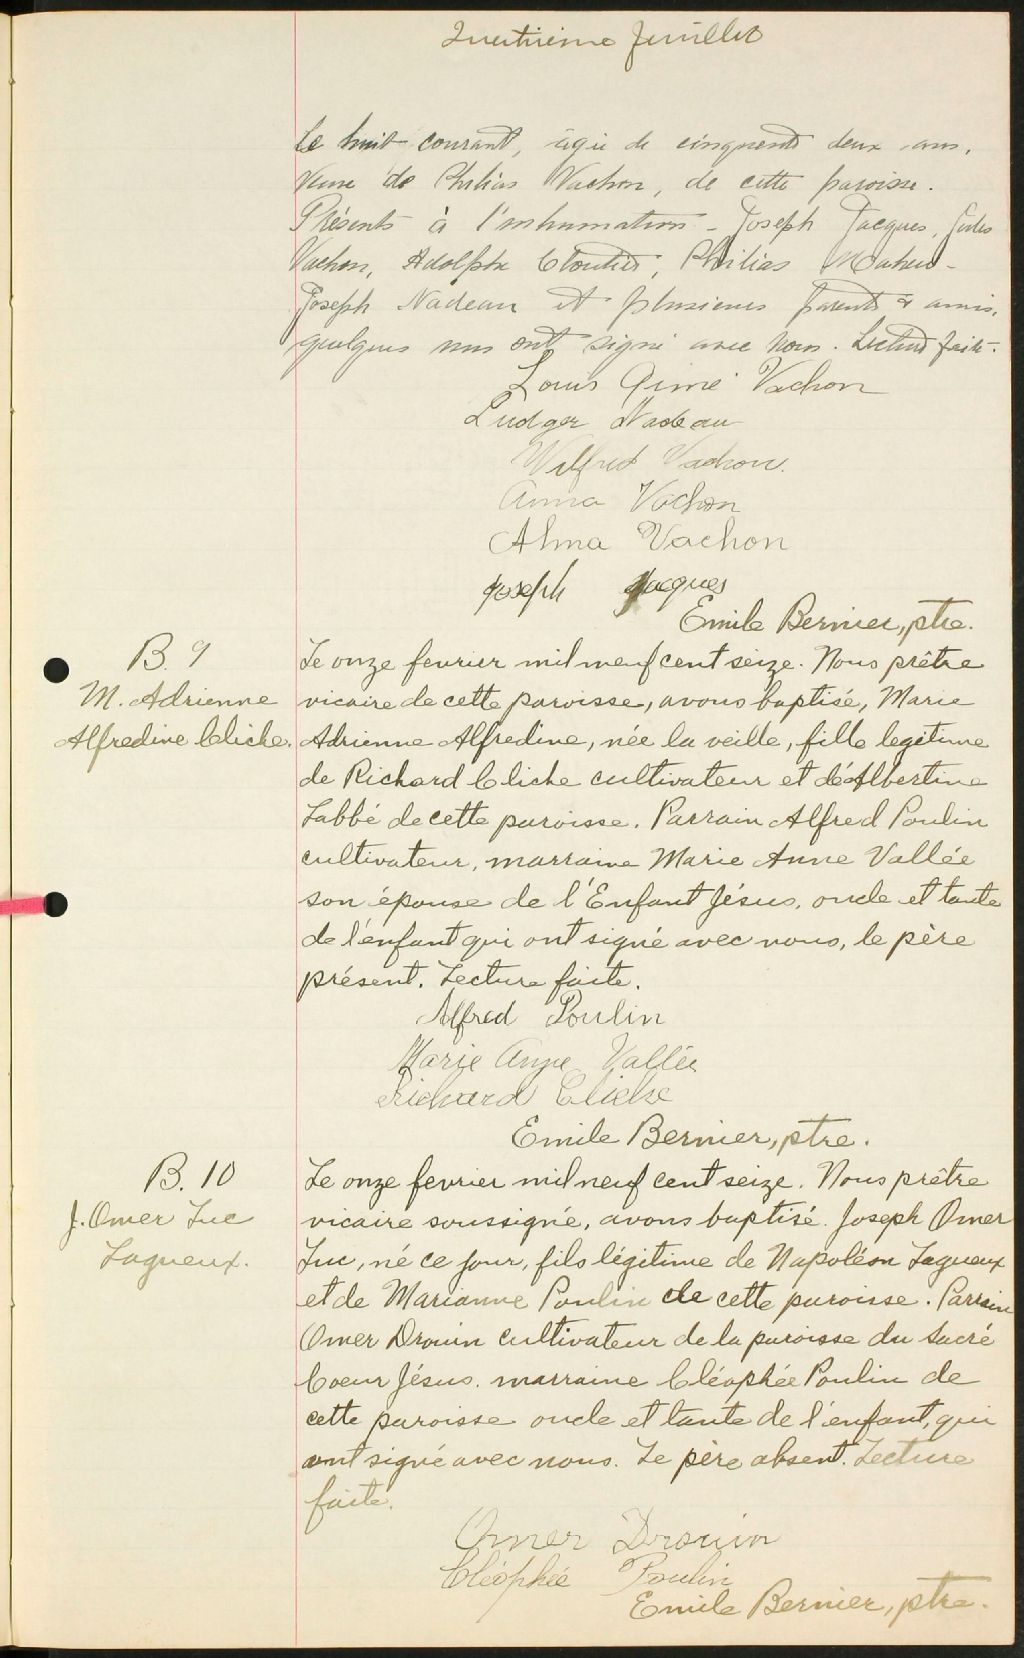 feuillet
le huit courant, âgée de cinquante deux ans,
Veuve de Philias Vachon, de cette paroisse.
Présents à l'inhumation - Joseph Jacques, Jules
Vachon, Adolphe Cloutier, Philias Maheu -
Joseph Nadeau et plusieurs parents & amis,
quelques uns ont signé avec nous. Lecture faite.
Louis Aimé Vachon
Ludger Nadeau
Wilfrid Vachon.
Anna Vachon
Alma Vachon
Joseph Jacques
Emile Bernier, ptre.
B. 9
M. Adrienne
Alfredine Cliche.
Le onze fevrier mil neuf cent seize. Nous prêtre
vicaire de cette paroisse, avons baptisé, Marie
Adrienne Alfredine, née la veille, fille legitime
de Richard Cliche cultivateur et de Albertine
Labbé de cette paroisse. Parrain Alfred Poulin
cultivateur, marraine Marie Anne Vallée
son épouse de l'Enfant Jésus, oncle et tante
de l'enfant qui ont signé avec nous, le père
présent. Lecture faite.
Alfred Poulin
Marie Anne Vallée
Richard Cliche
Emile Bernier, ptre.
B. 10
J. Omer Luc
Lagueux.
Le onze fevrier mil neuf cent seize. Nous prêtre
vicaire soussigné, avons baptisé. Joseph Omer
Luc, né ce jour, fils légitime de Napoléon Lagueux
et de Marianne Poulin de cette paroisse. Parrain
Omer Drouin cultivateur de la paroisse du Sacré
Coeur Jésus. marraine Cléophée Poulin de
cette paroisse oncle et tante de l'enfant, qui
ont signé avec nous. Le père absent. Lecture
faite.
Omer Drouin
Cléophée Poulin
Emile Bernier, ptre.